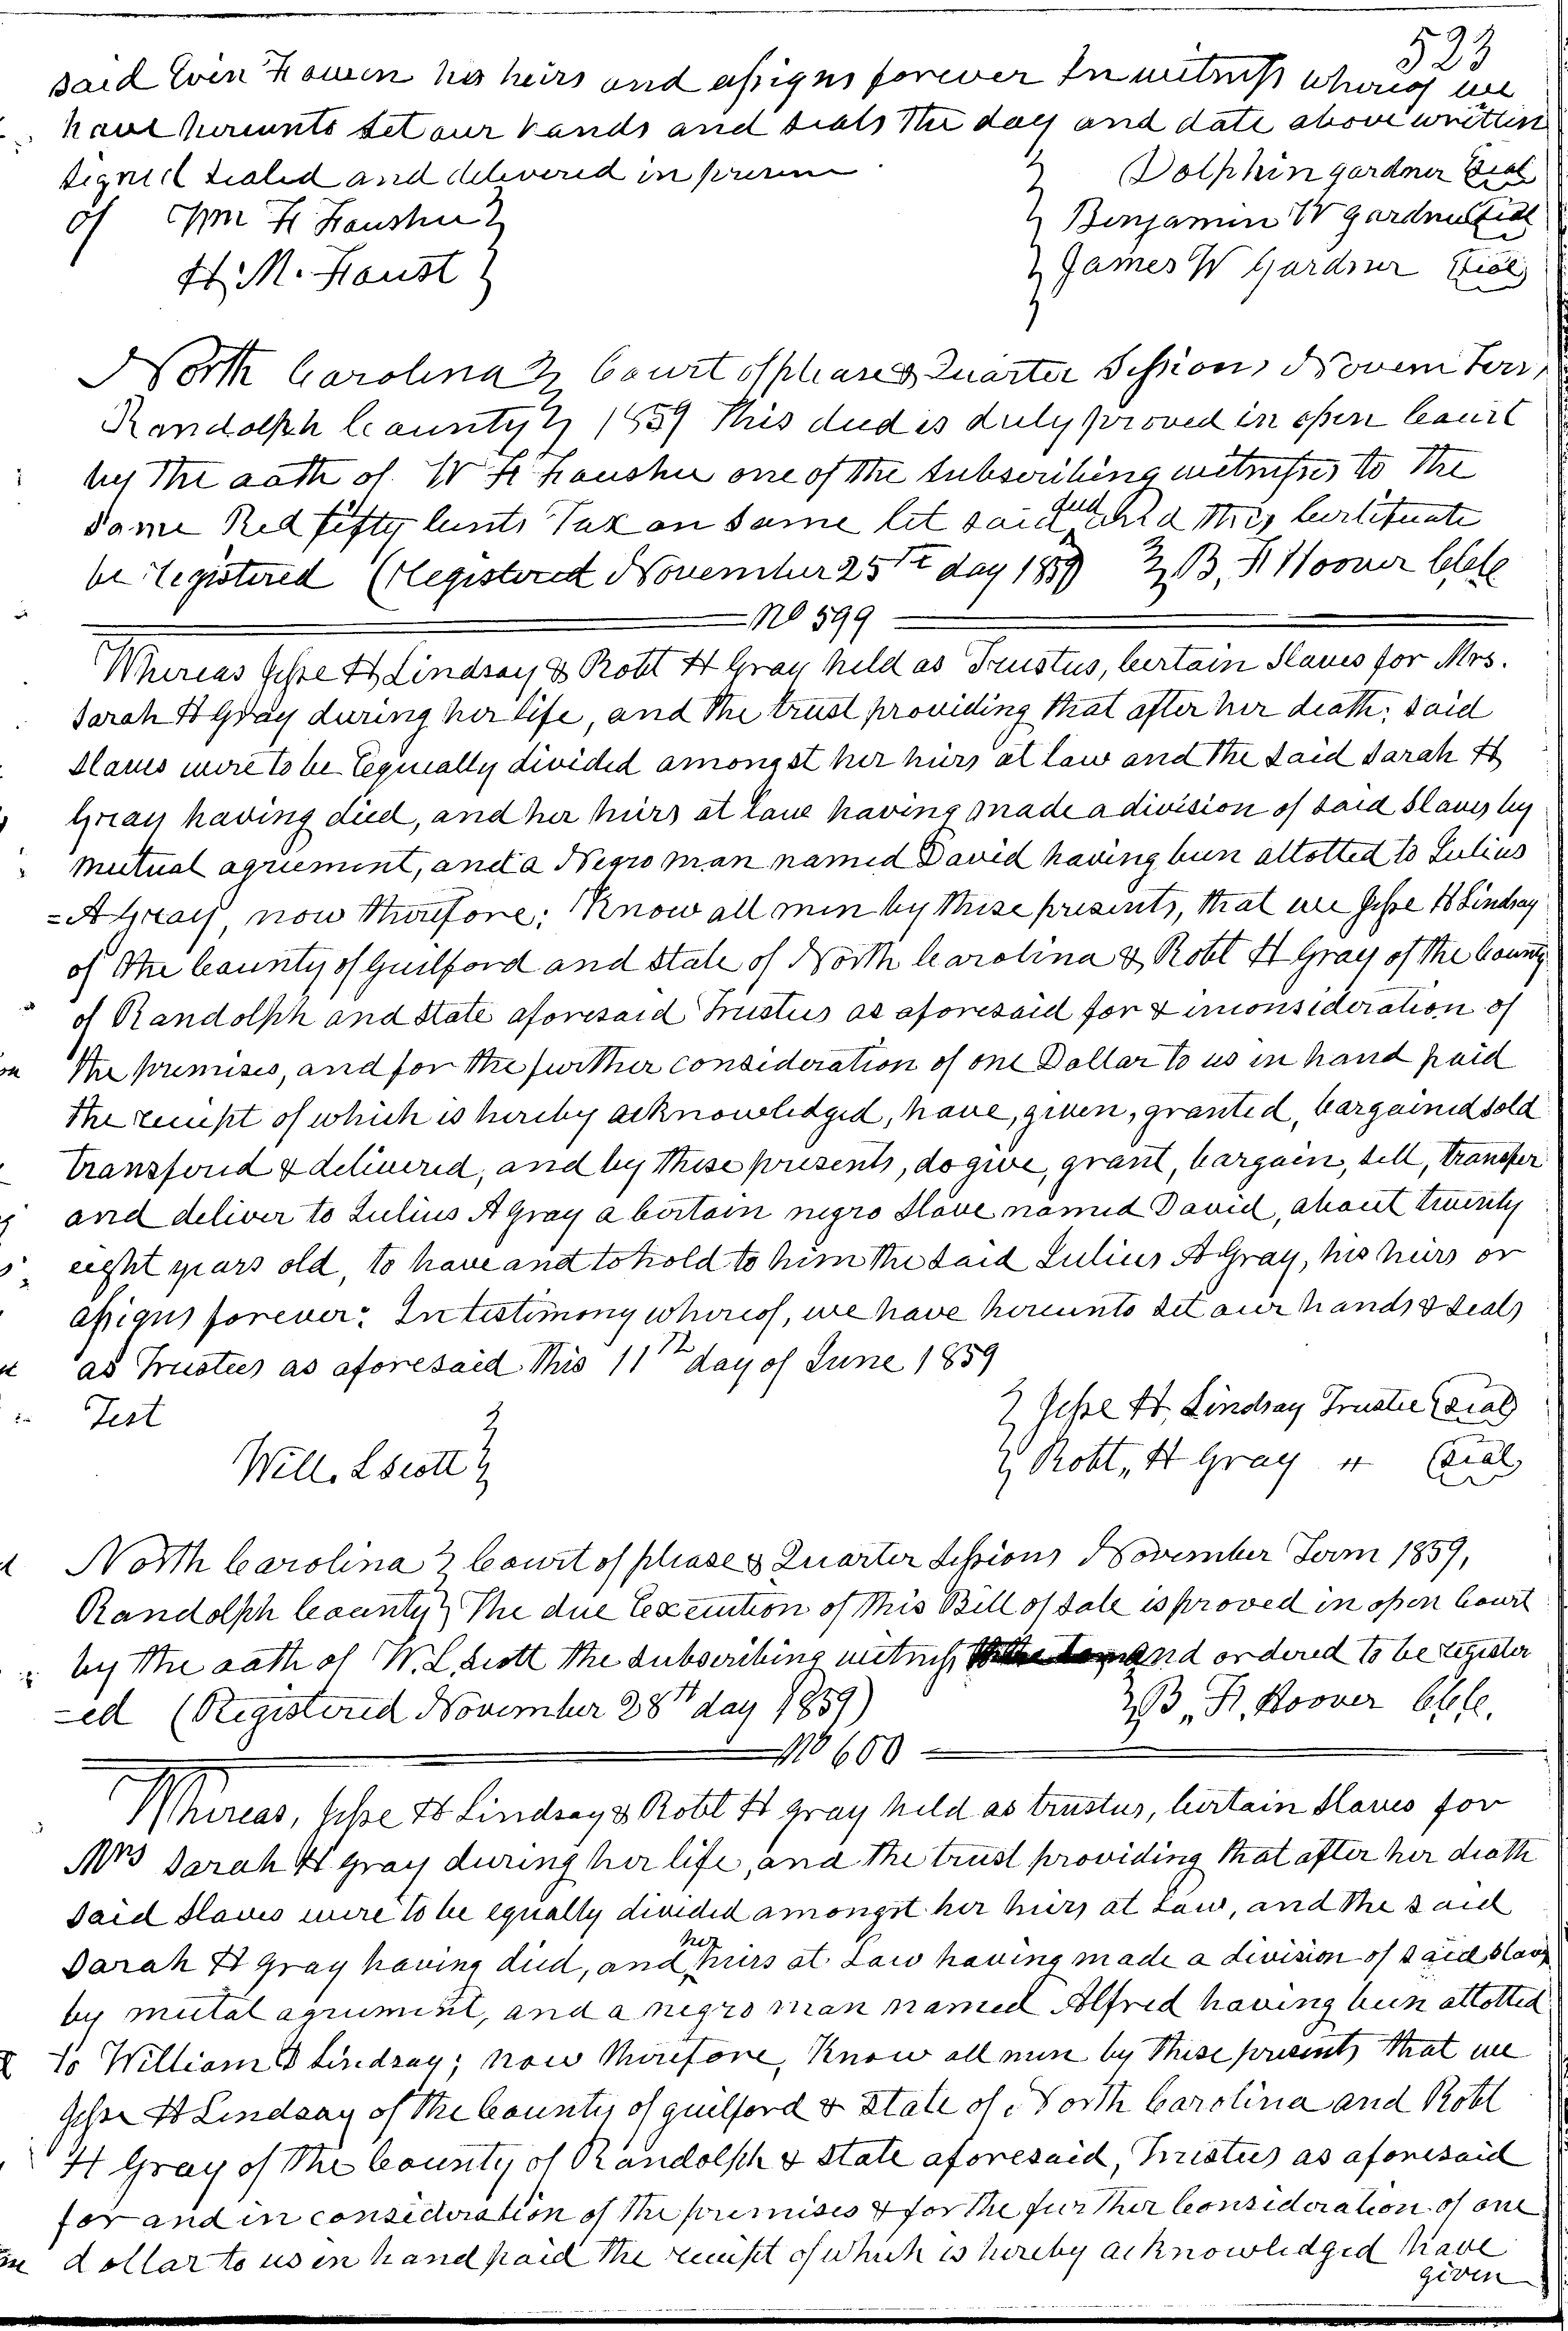 523
said Evin Hamin his heirs and assigns forever In witness whereof we
have hereunto set our hands and seals the day and date above written
signed sealed and delivered in presen
Dolphin gardner Seal
of Wm H Haushu
Benjamin W gardner Seal
H. M. Haust
James W Gardner Seal
North Carolina Court of pleas & Quarter Sessions Novem Term
Randolph County 1859 This deed is duly proved in open Court
by the oath of W H Haushu one of the subscribing witnesses to the
same Red fifty Cents Tax on same let said deed and this Certificate
be registered (Registered November 25th day 1859) B, F Hoover Clk
No 599
Whereas Jesse H Lindsay & Robt H Gray held as Trustees, Certain Slaves for Mrs.
Sarah H Gray during her life, and the trust providing that after her death; said
slaves were to be Eqequally divided amongst her heirs at law and the said Sarah H
Gray having died, and her heirs at law having made a division of said Slaves by
mutual agreement, and a Negro man named David having been allotted to Julius
=A Gray, now therefore; Know all men by these presents, that we Jesse H Lindsay
of the County of Guilford and State of North Carolina & Robt H Gray of the County
of Randolph and State aforesaid Trustees as aforesaid for & in consideration of
the premises, and for the further consideration of one Dollar to us in hand paid
the receipt of which is hereby acknowledged, have, given, granted, bargained sold
transferd & delivered, and by these presents, do give, grant, bargain, sell, transfer
and deliver to Julius A Gray a Certain negro Slave named David, about twenty
eight years old, to have and to hold to him the said Julius A Gray, his heirs or
assigns forever. In testimony whereof, we have hereunto set our hands & seals
as Trustees as aforesaid this 11th day of June 1859
Test
Jesse H. Lindsay Trustee Seal
Will. L Scott
Robt,, H Gray " Seal
North Carolina Court of pleas & Quarter Sessions November Term 1859,
Randolph County The due Execution of this Bill of sale is proved in open Court
by the oath of W. L. Scott the subscribing witness and ordered to be register
=ed (Registered November 28th day 1859) B,, F. Hoover Clk.
No 600
Whereas, Jesse H Lindsay & Robt H gray held as trustees, Certain slaves for
Mrs Sarah H gray during her life, and the trust providing that after her death
said slaves were to be equally divided amongst her heirs at Law, and the said
Sarah H Gray having died, and her heirs at Law having made a division of said slaves
by mutal agreement, and a negro man named Alfred having been allotted
to William D Lindsay; now therefore, Know all men by these presents that we
Jesse H Lindsay of the County of guilford & State of North Carolina and Robt
H Gray of the County of Randolph & State aforesaid, Trustees as aforesaid
for and in consideration of the premises & for the further Consideration of one
dollar to us in hand paid the receipt of which is hereby acknowledged have
given